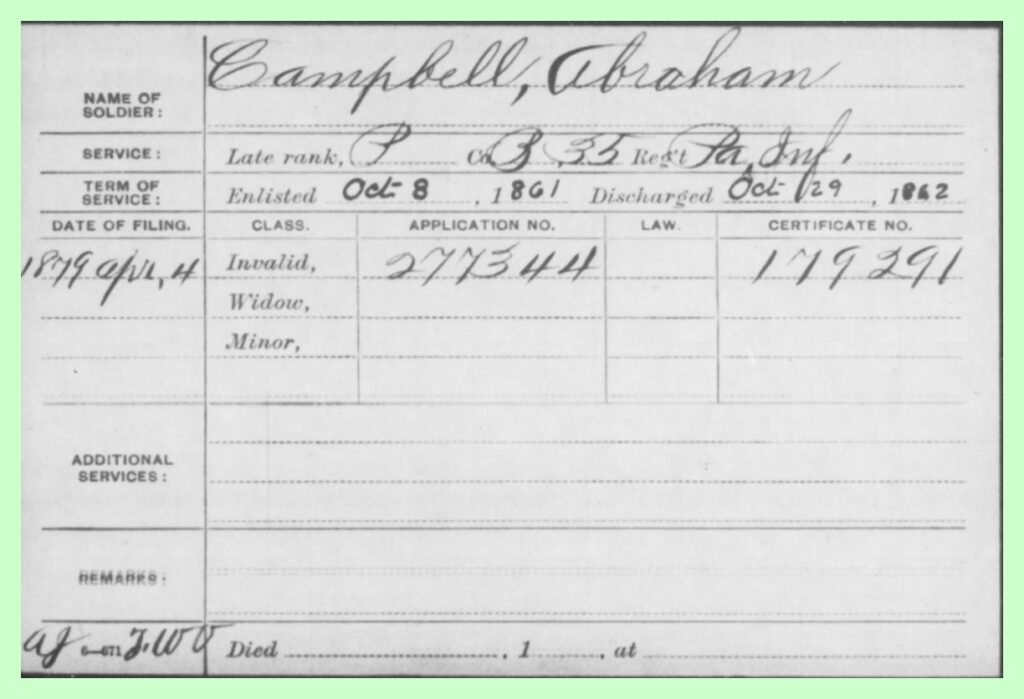 NAME OF SOLDIER: Campbell, Abraham
SERVICE: Late rank, P Co. B, 35 Reg't Pa. Inf.
TERM OF SERVICE: Enlisted Oct 8, 1861 Discharged Oct 29, 1862
DATE OF FILING. CLASS. APPLICATION NO. LAW. CERTIFICATE NO.
1879 Apr, 4 Invalid, 277344 179291
Widow,
Minor,
ADDITIONAL SERVICES:
REMARKS:
6—671 Died , 1 , at